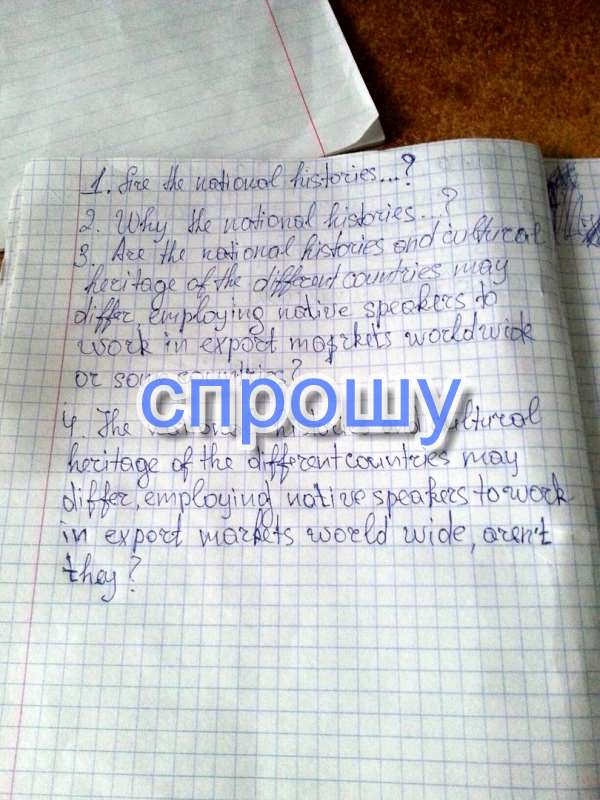 1. Are the national histories...?
2. Why the national histories...?
3. Are the national histories and cultural
heritage of the different countries may
differ, employing native speakers to
work in export markets worldwide
or some countries?
спрошу
4. The national and cultural
heritage of the different countries may
differ, employing native speakers to work
in export markets world wide, aren't
they?